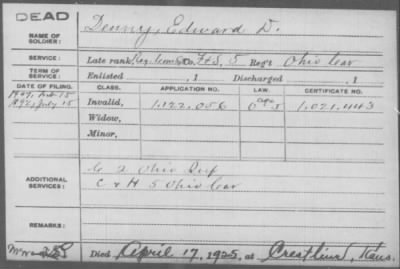 DEAD
NAME OF SOLDIER: Denny, Edward D.
SERVICE: Late rank, Reg. Com Sgt Co. F&S, 5 Reg't Ohio Cav
TERM OF SERVICE: Enlisted , 1 Discharged , 1
DATE OF FILING. CLASS. APPLICATION NO. LAW. CERTIFICATE NO.
1892, July 15 Invalid, 1,122,056 1,021,443
Widow,
Minor,
ADDITIONAL SERVICES: 2 Ohio Inf
C & H 5 Ohio Cav
REMARKS:
Died April 17, 1925, at Crestline, Kans.